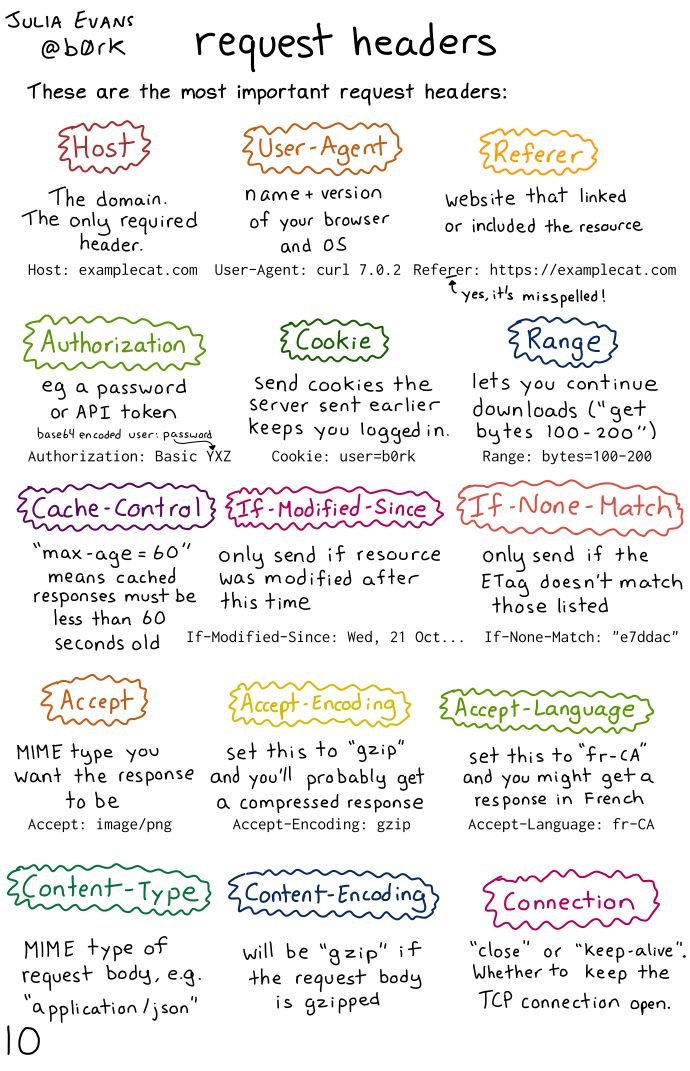 JULIA EVANS
@b0rk
request headers
These are the most important request headers:
Host
The domain.
The only required
header.
Host: examplecat.com
User-Agent
name + version
of your browser
and OS
User-Agent: curl 7.0.2
Referer
website that linked
or included the resource
Referer: https://examplecat.com
yes, it's misspelled!
Authorization
eg a password
or API token
base64 encoded user: password
Authorization: Basic YXZ
Cookie
send cookies the
server sent earlier
keeps you logged in.
Cookie: user=b0rk
Range
lets you continue
downloads ("get
bytes 100-200")
Range: bytes=100-200
Cache-Control
"max-age = 60"
means cached
responses must be
less than 60
seconds old
If-Modified-Since
only send if resource
was modified after
this time
If-Modified-Since: Wed, 21 Oct...
If-None-Match
only send if the
ETag doesn't match
those listed
If-None-Match: "e7ddac"
Accept
MIME type you
want the response
to be
Accept: image/png
Accept-Encoding
set this to "gzip"
and you'll probably get
a compressed response
Accept-Encoding: gzip
Accept-Language
set this to "fr-CA"
and you might get a
response in French
Accept-Language: fr-CA
Content-Type
MIME type of
request body, e.g.
"application/json"
Content-Encoding
will be "gzip" if
the request body
is gzipped
Connection
"close" or "keep-alive".
Whether to keep the
TCP connection open.
10